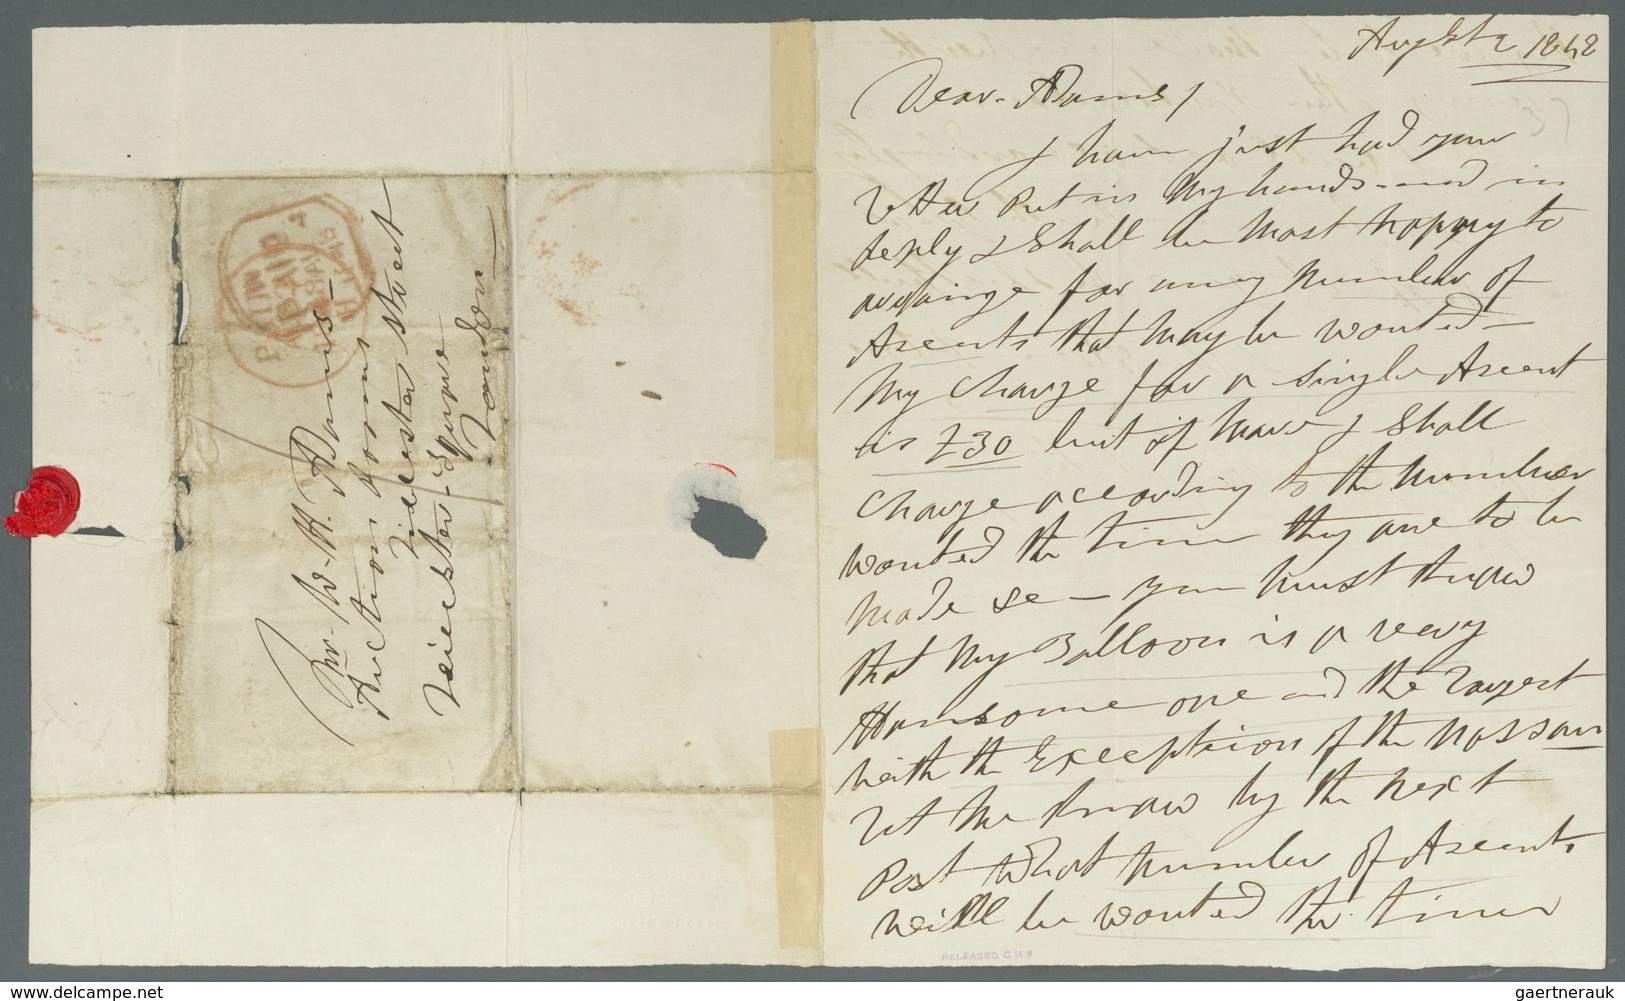 Mr. W. H. Adams -
Auction Rooms
Leicester Street
Leicester - Square
London
PAID
August 2 1848
Dear Adams /
I have just had your
Letter Put in My hands - and in
reply I Shall be Most Happy to
arrainge for any Number of
Ascents that May be wonted -
My Charge for a Single Ascent
is £30 but if More I Shall
Charge according to the Number
wonted the time they are to be
Made &c - you Must Know
that My Balloon is a veary
Hansome one and the Largest
with the Exception of the Nassau
Let Me Know by the Next
Post What Number of Ascents
will be wonted the time
RELEASED G H S
www.delcampe.net
gaertnerauk